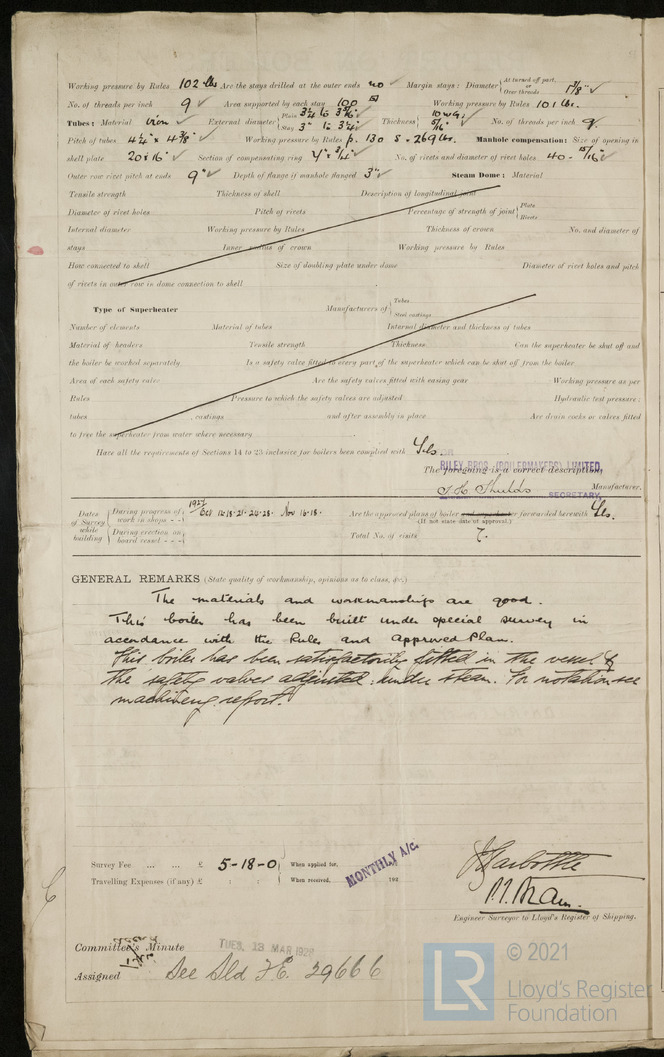 Working pressure by Rules 102 lbs Are the stays drilled at the outer ends no ✓ Margin stays: Diameter { At turned off part, or Over threads 1⅞" ✓
No. of threads per inch 9 ✓ Area supported by each stay 100 Working pressure by Rules 101 lbs.
Tubes: Material iron ✓ External diameter { Plain 3¼ to Stay 3" to 3¼ ✓ Thickness { 10 WG 5/16" No. of threads per inch 9 ✓
Pitch of tubes 4¼" x 4⅜" ✓ Working pressure by Rules p. 130 s. 269 lbs. Manhole compensation: Size of opening in
shell plate 20 x 16" ✓ Section of compensating ring No. of rivets and diameter of rivet holes 40 - 15/16" ✓
Outer row rivet pitch at ends 9" ✓ Depth of flange if manhole flanged 3" ✓ Steam Dome: Material
Tensile strength Thickness of shell Description of longitudinal joint
Diameter of rivet holes Pitch of rivets Percentage of strength of joint { Plate Rivets
Internal diameter Working pressure by Rules Thickness of crown No. and diameter of
stays Inner radius of crown Working pressure by Rules
How connected to shell Size of doubling plate under dome Diameter of rivet holes and pitch
of rivets in outer row in dome connection to shell
Type of Superheater Manufacturers of { Tubes Steel castings
Number of elements Material of tubes Internal diameter and thickness of tubes
Material of headers Tensile strength Thickness Can the superheater be shut off and
the boiler be worked separately Is a safety valve fitted to every part of the superheater which can be shut off from the boiler
Area of each safety valve Are the safety valves fitted with easing gear Working pressure as per
Rules Pressure to which the safety valves are adjusted Hydraulic test pressure:
tubes , castings and after assembly in place Are drain cocks or valves fitted
to free the superheater from water where necessary
Have all the requirements of Sections 14 to 23 inclusive for boilers been complied with Yes.
RILEY BROS. (BOILERMAKERS) LIMITED,
The foregoing is a correct description,
Manufacturer.
SECRETARY.
Dates of Survey while building { During progress of work in shops - - { 1927 Oct 12-18-21-24-28. Nov 16-18. Are the approved plans of boiler and superheater forwarded herewith Yes.
(If not state date of approval.)
{ During erection on board vessel - - - { Total No. of visits 7.
GENERAL REMARKS (State quality of workmanship, opinions as to class, &c.)
The materials and workmanships are good.
This boiler has been built under special survey in
accordance with the Rules and approved Plan.
This boiler has been satisfactorily fitted in the vessel &
the safety valves adjusted under steam. For notation see
machinery report.
Survey Fee ... ... £ 5-18-0 { When applied for,
Travelling Expenses (if any) £ : : { When received, 192
MONTHLY A/c.
Engineer Surveyor to Lloyd's Register of Shipping.
Committee's Minute TUES. 13 MAR 1928
Assigned See Sld F.E. 29666
© 2021
LR
Lloyd's Register
Foundation